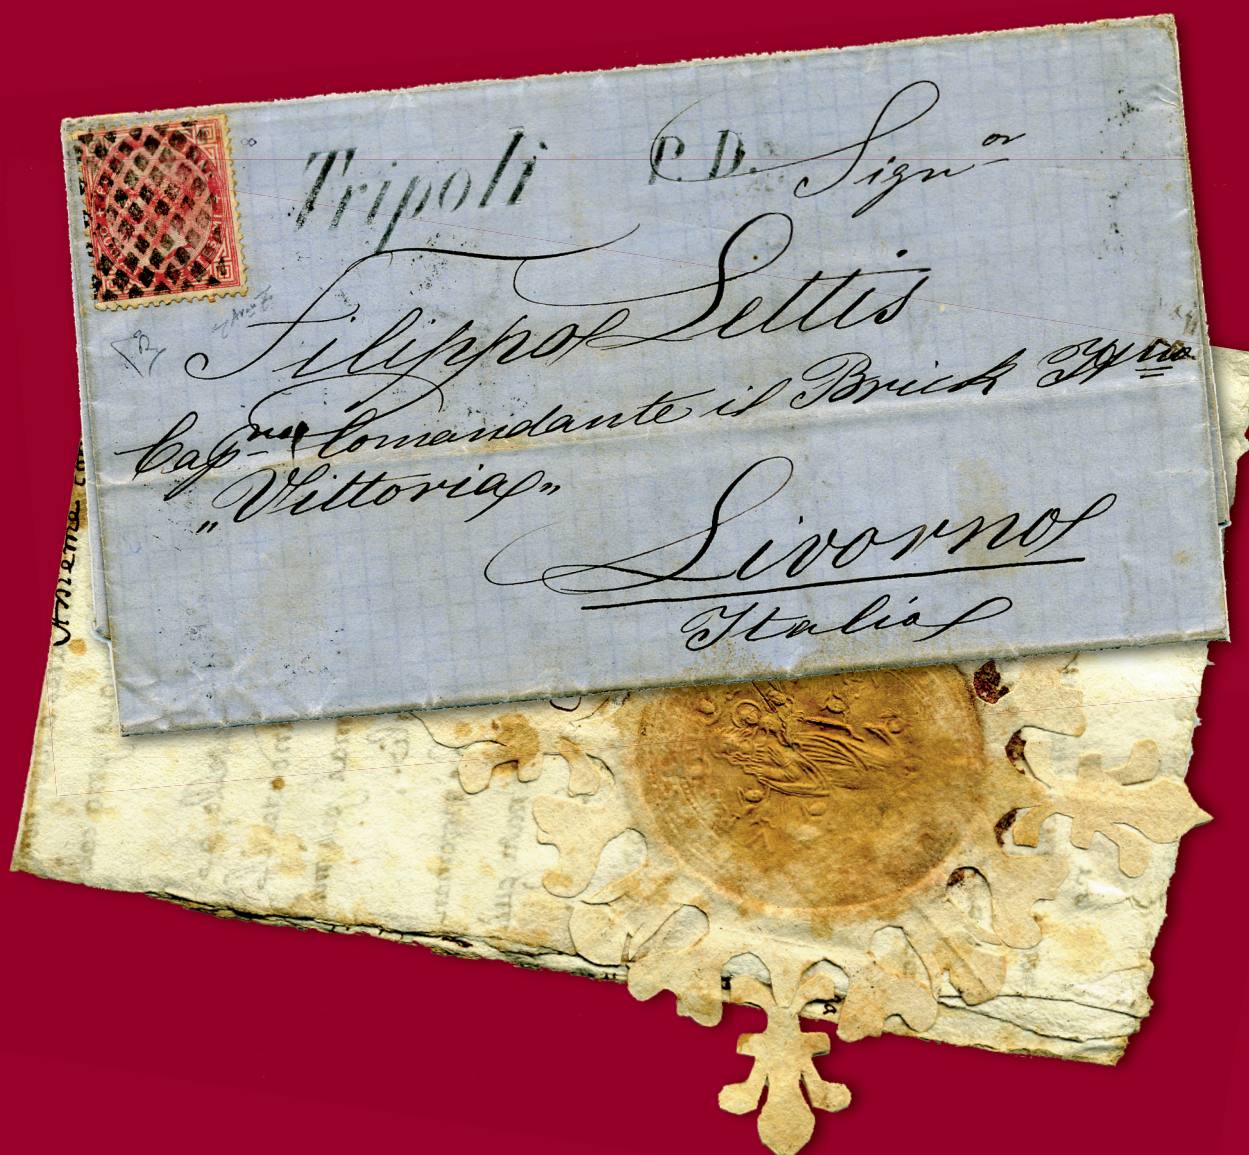 Tripoli P. D. Sign.or
Filippo Lettis
Cap.no Comandante il Brick
„Vittoria„
Livorno
Italia
Assieme